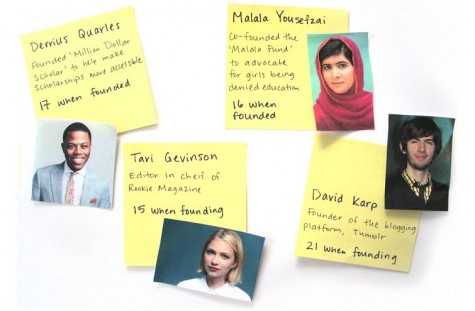 Derrius Quarles
Founded 'Million Dollar
Scholar' to help make
Scholarships more accessible
17 when founded
Malala Yousefzai
Co-founded the
'Malala Fund'
to advocate
for girls being
denied education
16 when
founded
Tavi Gevinson
Editor in cheif of
Rookie Magazine
15 when founding
David Karp
Founder of the blogging
platform, Tumblr
21 when founding